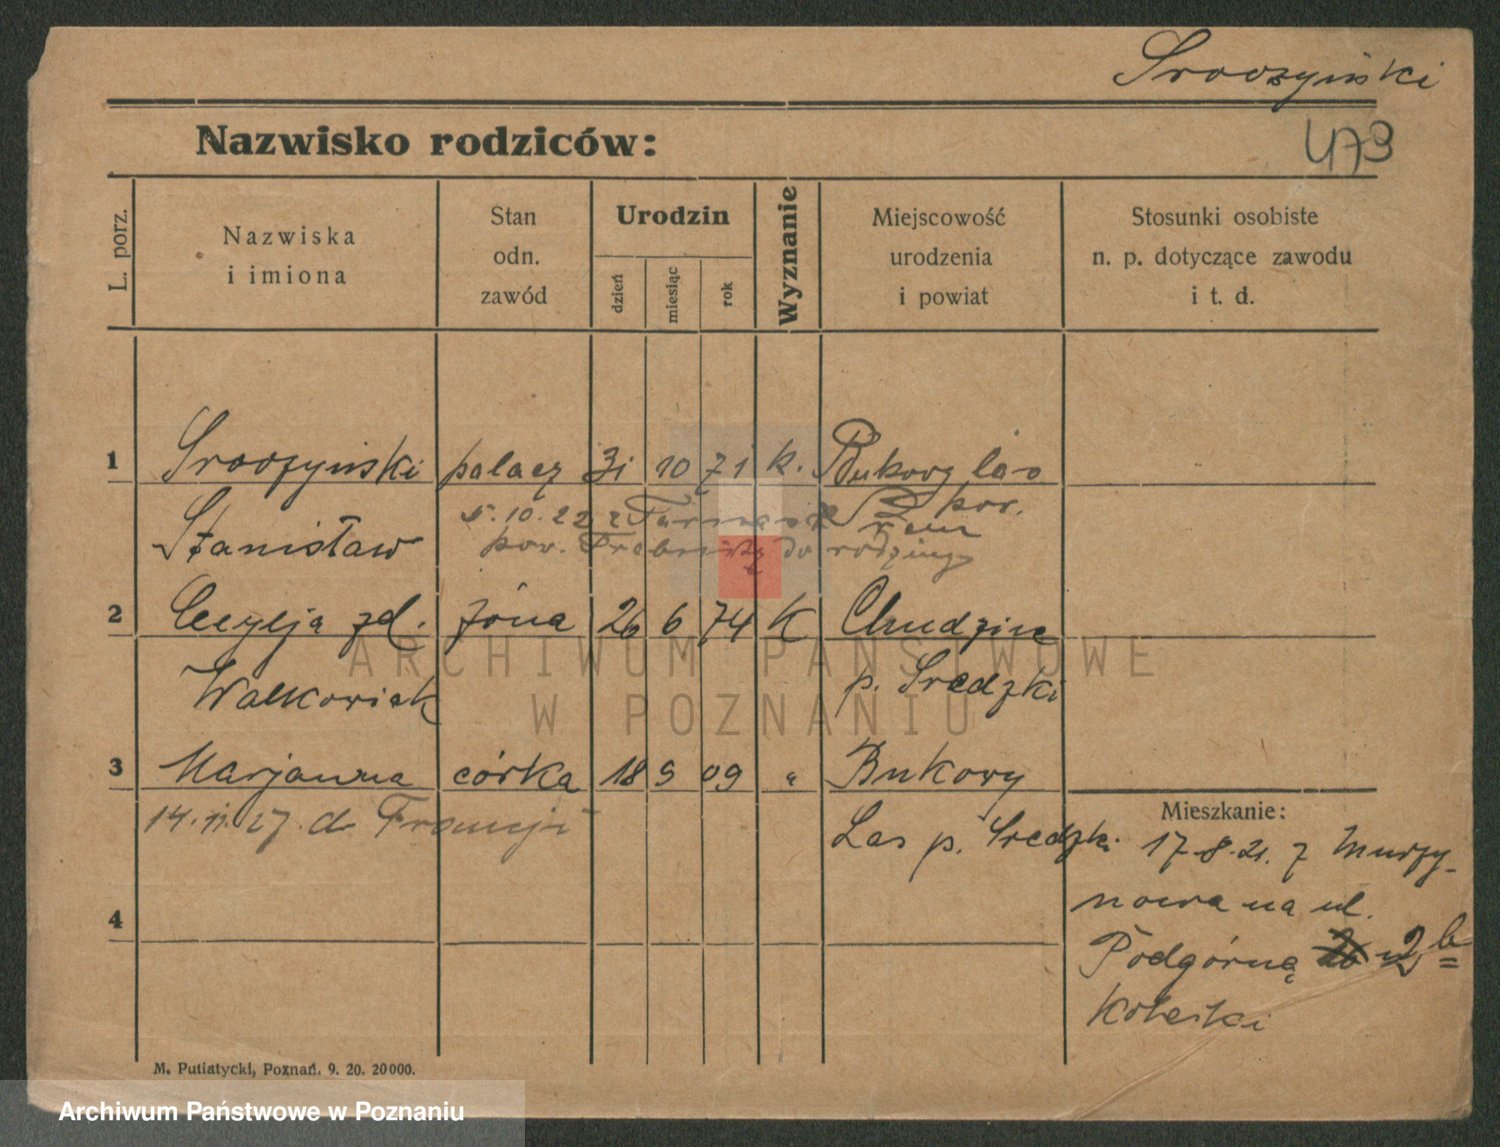 Sroczyński
473
Nazwisko rodziców:
L. porz.
Nazwiska
i imiona
Stan
odn.
zawód
Urodzin
dzień
miesiąc
rok
Wyznanie
Miejscowość
urodzenia
i powiat
Stosunki osobiste
n. p. dotyczące zawodu
i t. d.
1 Sroczyński palacz 31 10 71 k. Bukowy las
pow.
Stanisław
5.10.22 z
pow. do rodziny
2 Cecylja zd. żona 26 6 74 K
Walkowiak p. Sredzki
3 Marjanna córka 18 9 09 " Bukowy
14.11.27. do Francji Las p. Sredzki
4
Mieszkanie:
17.8.21. z Murzy-
nowa na ul.
Podgórną 2b
M. Putiatycki, Poznań. 9. 20. 20000.
ARCHIWUM PAŃSTWOWE
W POZNANIU
Archiwum Państwowe w Poznaniu